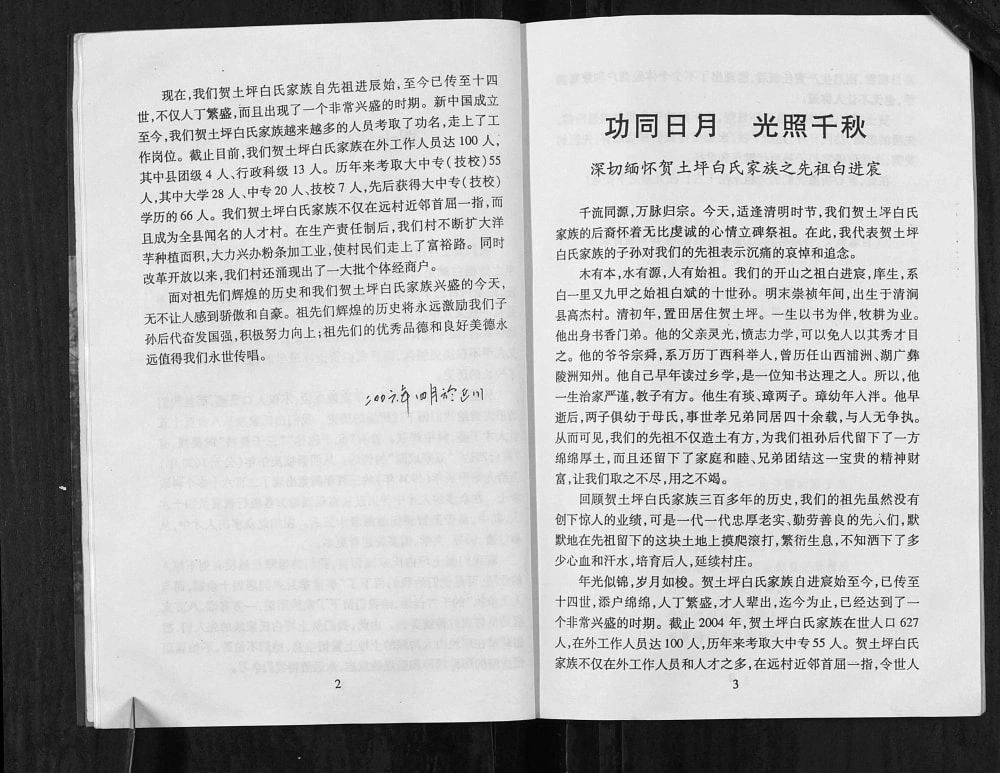 现在，我们贺土坪白氏家族自先祖进辰始，至今已传至十四
世，不仅人丁繁盛，而且出现了一个非常兴盛的时期。新中国成立
至今，我们贺土坪白氏家族越来越多的人员考取了功名，走上了工
作岗位。截止目前，我们贺土坪白氏家族在外工作人员达 100 人，
其中县团级 4 人、行政科级 13 人。历年来考取大中专(技校)55
人，其中大学 28 人、中专 20 人、技校 7 人，先后获得大中专(技校)
学历的 66 人。我们贺土坪白氏家族不仅在远村近邻首屈一指，而
且成为全县闻名的人才村。在生产责任制后，我们村不断扩大洋
芋种植面积，大力兴办粉条加工业，使村民们走上了富裕路。同时
改革开放以来，我们村还涌现出了一大批个体经商户。
面对祖先们辉煌的历史和我们贺土坪白氏家族兴盛的今天，
无不让人感到骄傲和自豪。祖先们辉煌的历史将永远激励我们子
孙后代奋发国强，积极努力向上；祖先们的优秀品德和良好美德永
远值得我们永世传唱。
二00六年四月於
2
功同日月　光照千秋
深切缅怀贺土坪白氏家族之先祖白进宸
千流同源，万脉归宗。今天，适逢清明时节，我们贺土坪白氏
家族的后裔怀着无比虔诚的心情立碑祭祖。在此，我代表贺土坪
白氏家族的子孙对我们的先祖表示沉痛的哀悼和追念。
木有本，水有源，人有始祖。我们的开山之祖白进宸，庠生，系
白一里又九甲之始祖白斌的十世孙。明末崇祯年间，出生于清涧
县高杰村。清初年，置田居住贺土坪。一生以书为伴，牧耕为业。
他出身书香门弟。他的父亲灵光，愤志力学，可以免人以其秀才目
之。他的爷爷宗舜，系万历丁西科举人，曾历任山西浦洲、湖广彝
陵洲知州。他自己早年读过乡学，是一位知书达理之人。所以，他
一生治家严谨，教子有方。他生有琰、璋两子。璋幼年人泮。他早
逝后，两子俱幼于母氏，事世孝兄弟同居四十余载，与人无争执。
从而可见，我们的先祖不仅造土有方，为我们祖孙后代留下了一方
绵绵厚土，而且还留下了家庭和睦、兄弟团结这一宝贵的精神财
富，让我们取之不尽，用之不竭。
回顾贺土坪白氏家族三百多年的历史，我们的祖先虽然没有
创下惊人的业绩，可是一代一代忠厚老实、勤劳善良的先人们，默
默地在先祖留下的这块土地上摸爬滚打，繁衍生息，不知洒下了多
少心血和汗水，培育后人，延续村庄。
年光似锦，岁月如梭。贺土坪白氏家族白进宸始至今，已传至
十四世，添户绵绵，人丁繁盛，才人辈出，迄今为止，已经达到了一
个非常兴盛的时期。截止 2004 年，贺土坪白氏家族在世人口 627
人，在外工作人员达 100 人，历年来考取大中专 55 人。贺土坪白氏
家族不仅在外工作人员和人才之多，在远村近邻首屈一指，令世人
3